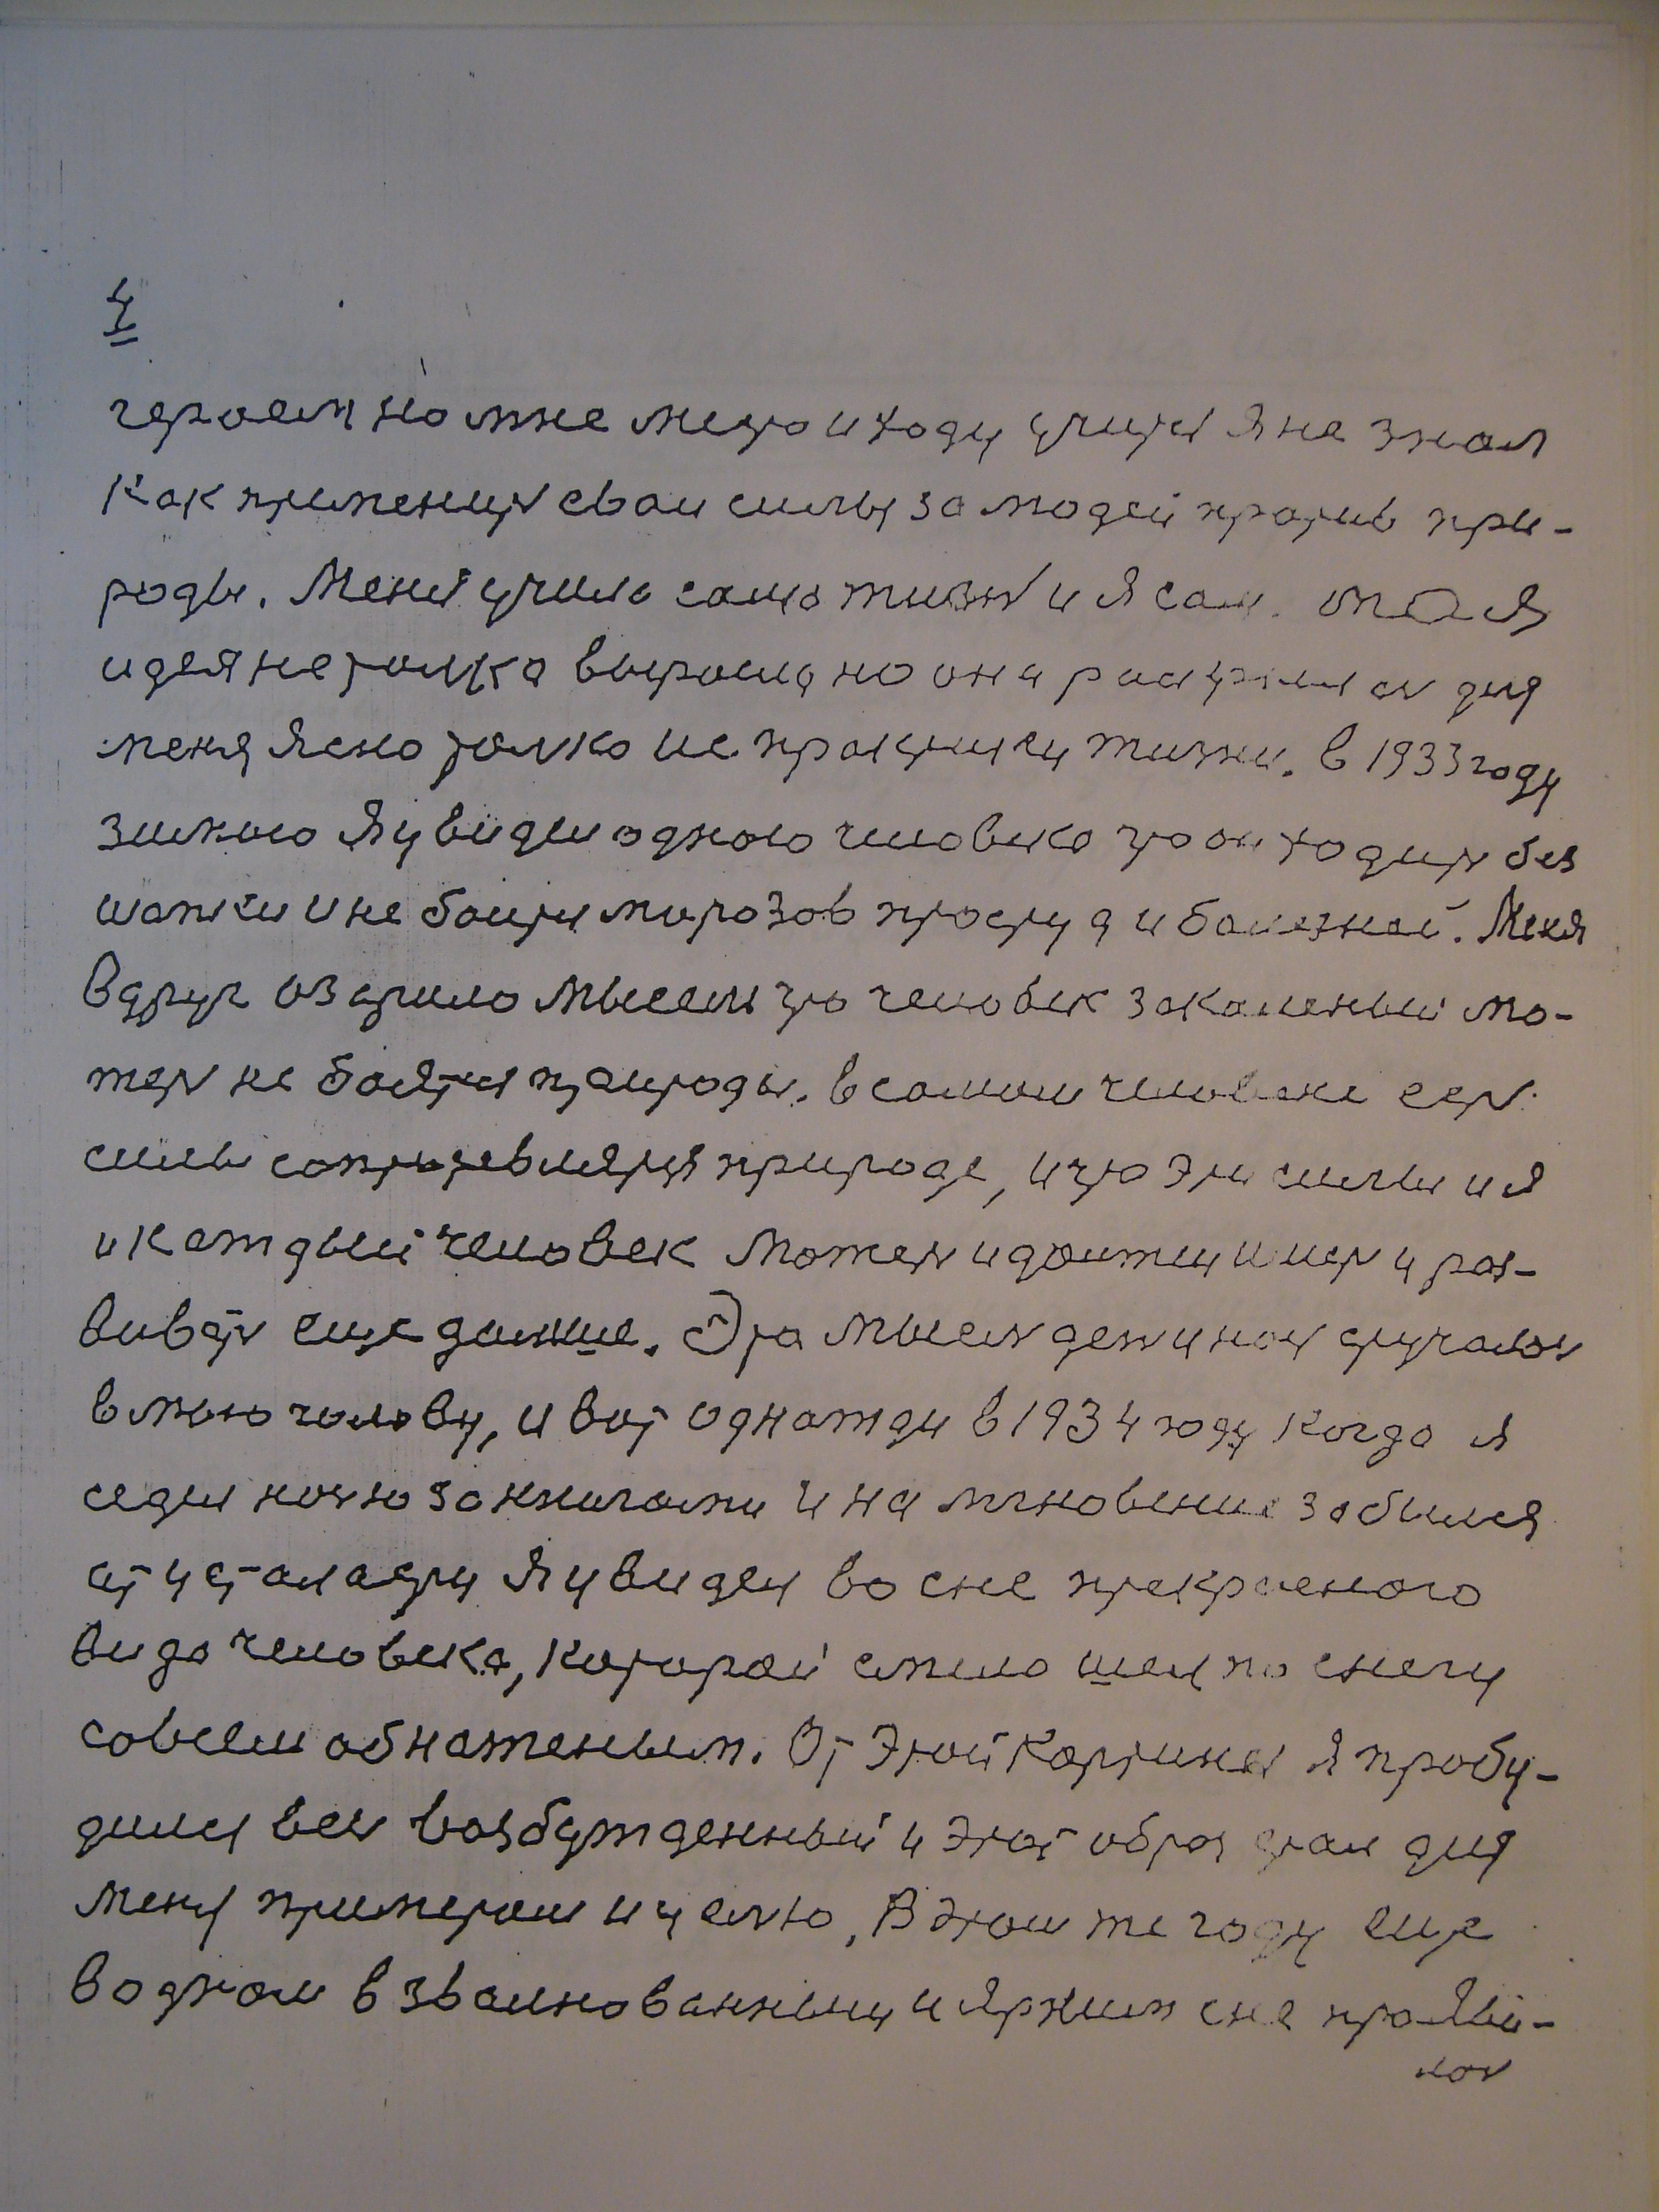 4
героем но мне некого и ходу учится я не знал
как применить сваи силы за людей против при-
роды. Меня учила сама жизнь и я сам. моя
идея не толка выросла но она раскрылась для
меня ясно толко не практики жизни. в 1933 году
зимою я увидел одного человека что он ходить без
шапки и не боится морозов простуд и болезней. Меня
вдруг озарило мыслю что человек закаленый мо-
жеть не боятся природы. в самом человеке есть
силы сопротевлятся природе, и что эти силы и я
и каждый человек можеть и должен иметь и раз-
вивать еще дальше. Эта мысль день и ночь стучалась
в мою голову, и вот однажды в 1934 году когда я
седел ночю за книгами и на мгновение забылся
от усталасти я увидел во сне прекрасного
вида человека, которой смело шел по снегу
совсем обнаженым. От этой картины я пробу-
дился весь возбужденный и этот образ стал для
меня примером и целю, В этом же году еще
в одном взвалнованным и ярким сне